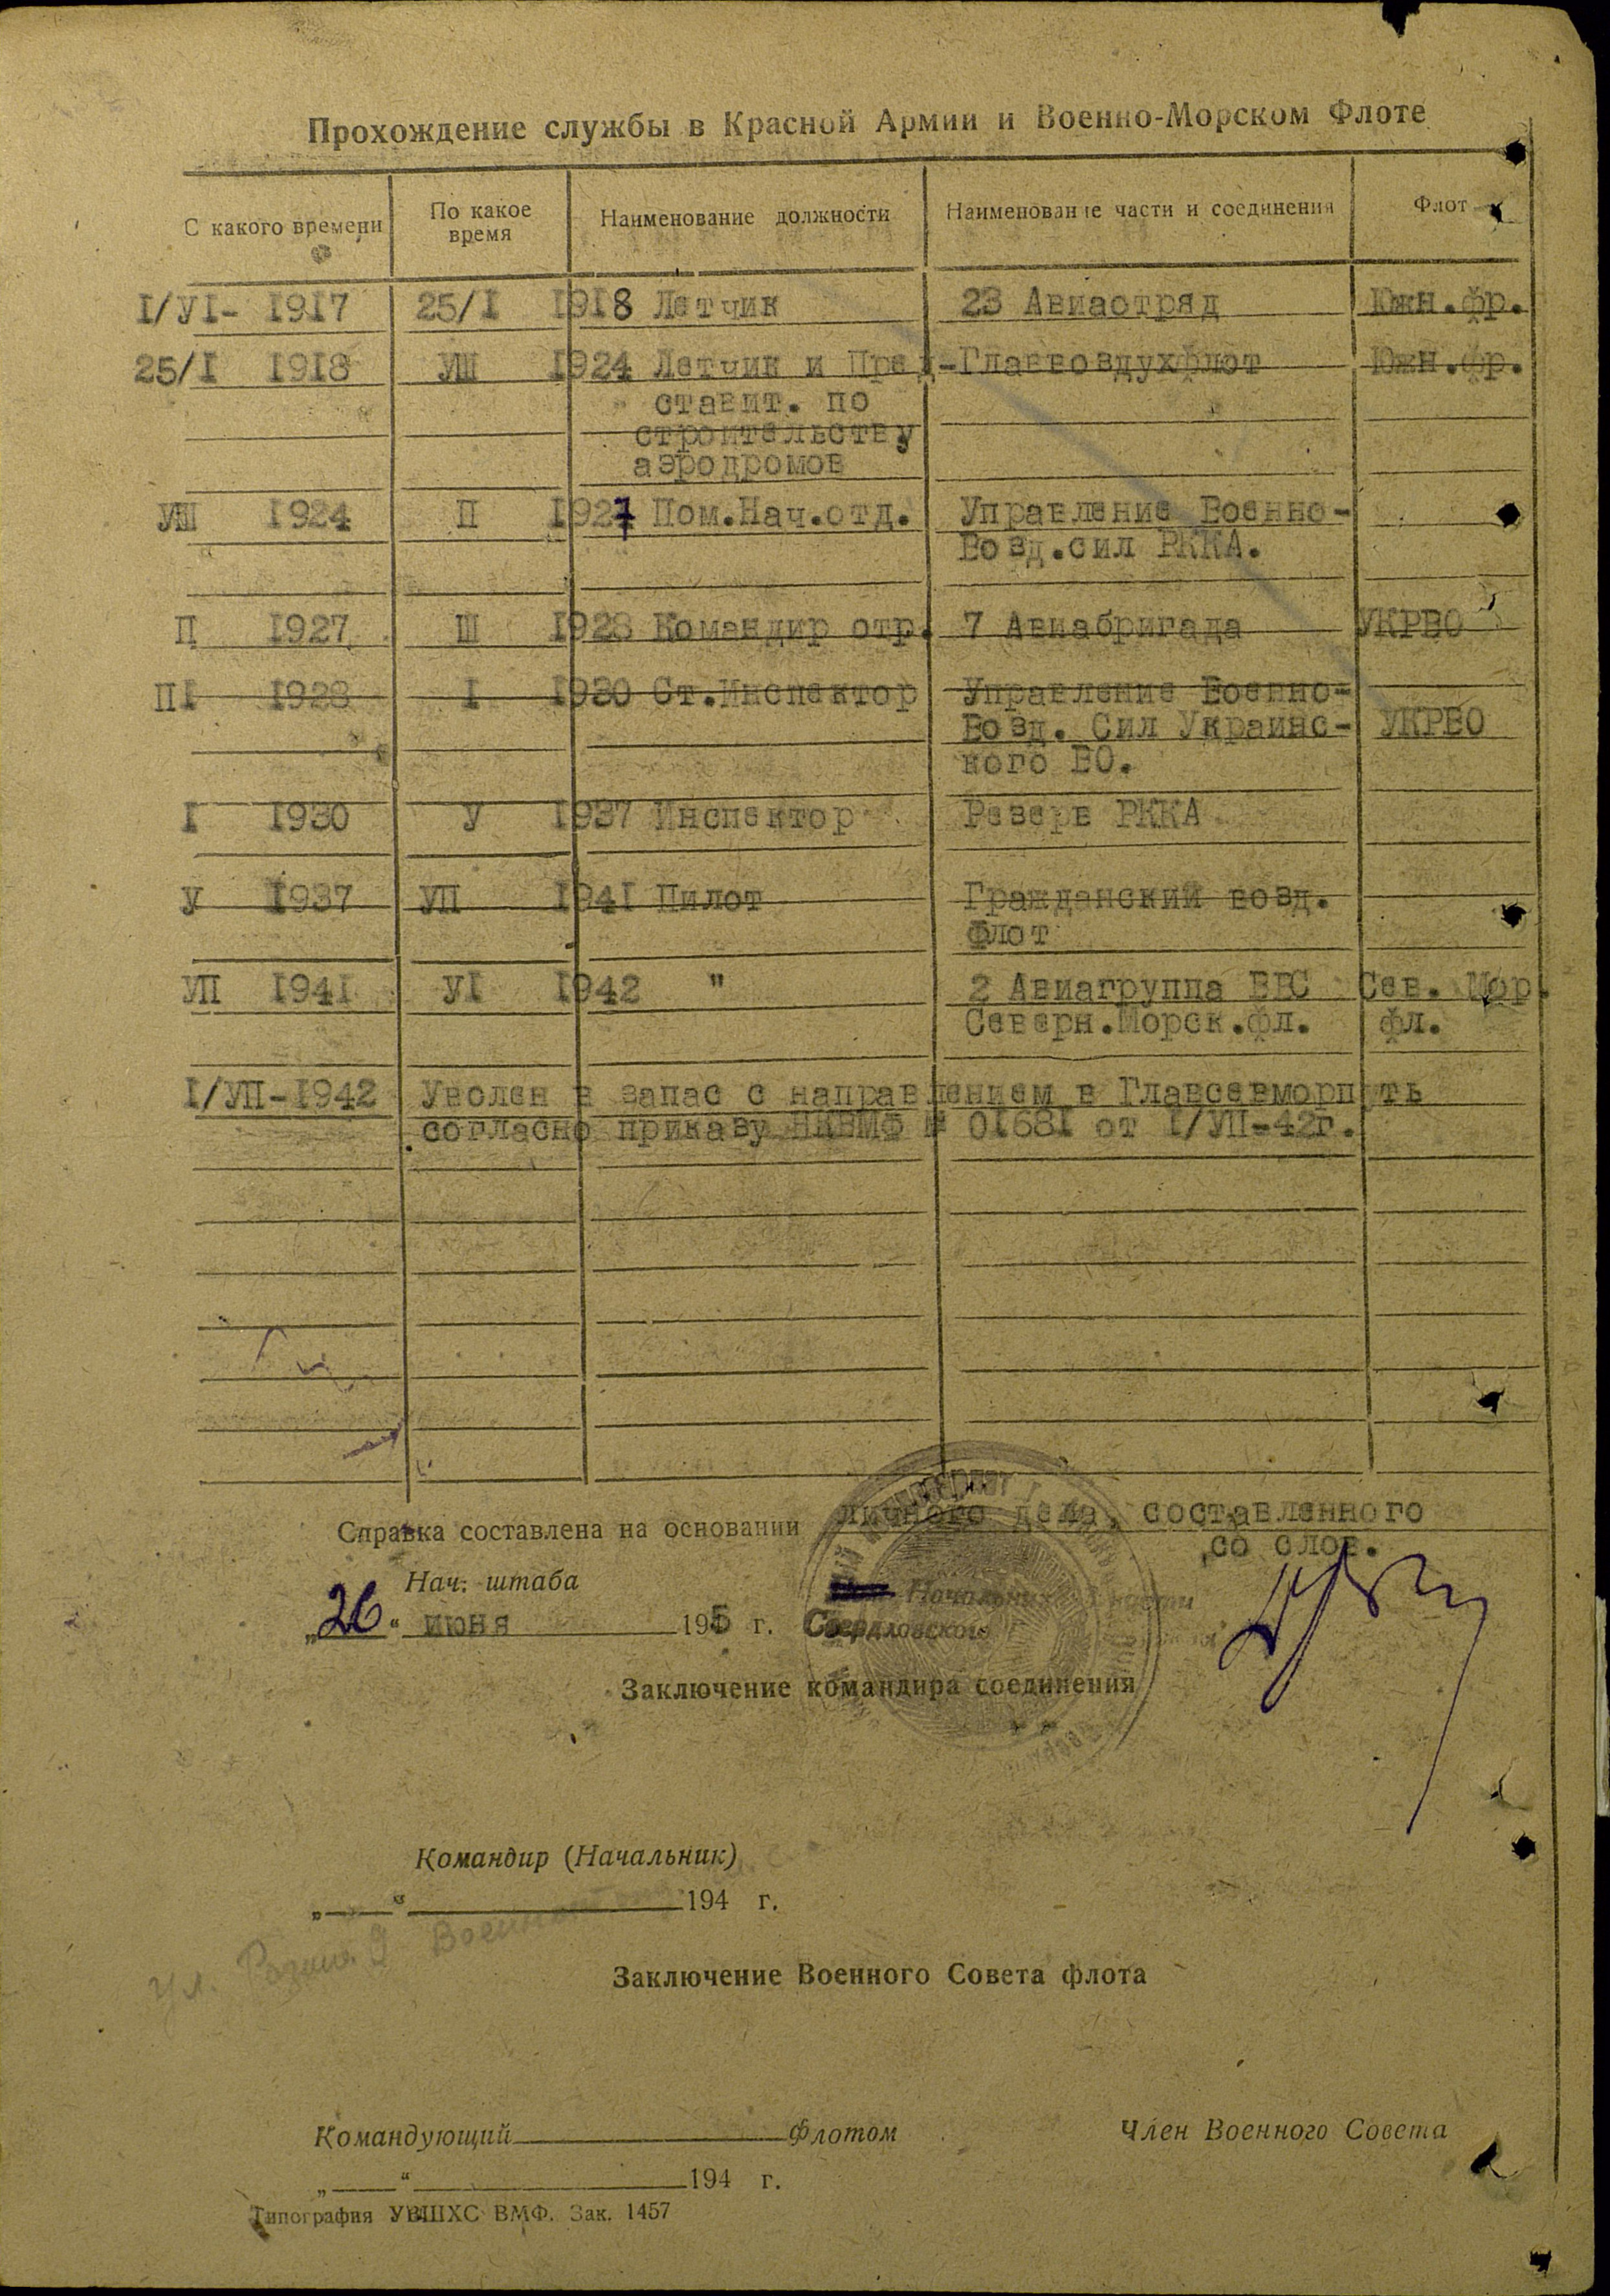 Прохождение службы в Красной Армии и Военно-Морском Флоте
С какого времени По какое время Наименование должности Наименование части и соединения Флот
I/УI- 1917 25/I 1918 Летчик 23 Авиаотряд Южн.фр.
25/I 1918 УШ 1924 Летчик и Пред-Главвоздухфлот Южн.фр.
ставит. по
строительству
аэродромов
УШ 1924 П 1927 Пом.Нач.отд. Управление Военно-
Возд.сил РККА.
П 1927 Ш 1928 Командир отр. 7 Авиабригада УКРВО
ПI 1928 I 1930 Ст.Инспектор Управление Военно-
Возд. Сил Украинс- УКРВО
кого ВО.
I 1930 У 1937 Инспектор Резерв РККА
У 1937 УП 1941 Пилот Гражданский возд.
флот
УП 1941 УI 1942 " 2 Авиагруппа ВВС Сев. Мор.
Северн.Морск.фл. фл.
I/УП-1942 Уволен в запас с направлением в Главсевморпуть
согласно приказу НКВМФ № 01681 от I/УП-42г.
Справка составлена на основании личного дела, составленного
со слов.
Нач. штаба Начальник части
„26“ июня 1945 г. Свердловского
Заключение командира соединения
Командир (Начальник)
„ “ 194 г.
ул. Розина 9
Заключение Военного Совета флота
Командующий флотом Член Военного Совета
„ “ 194 г.
Типография УВШХС ВМФ. Зак. 1457